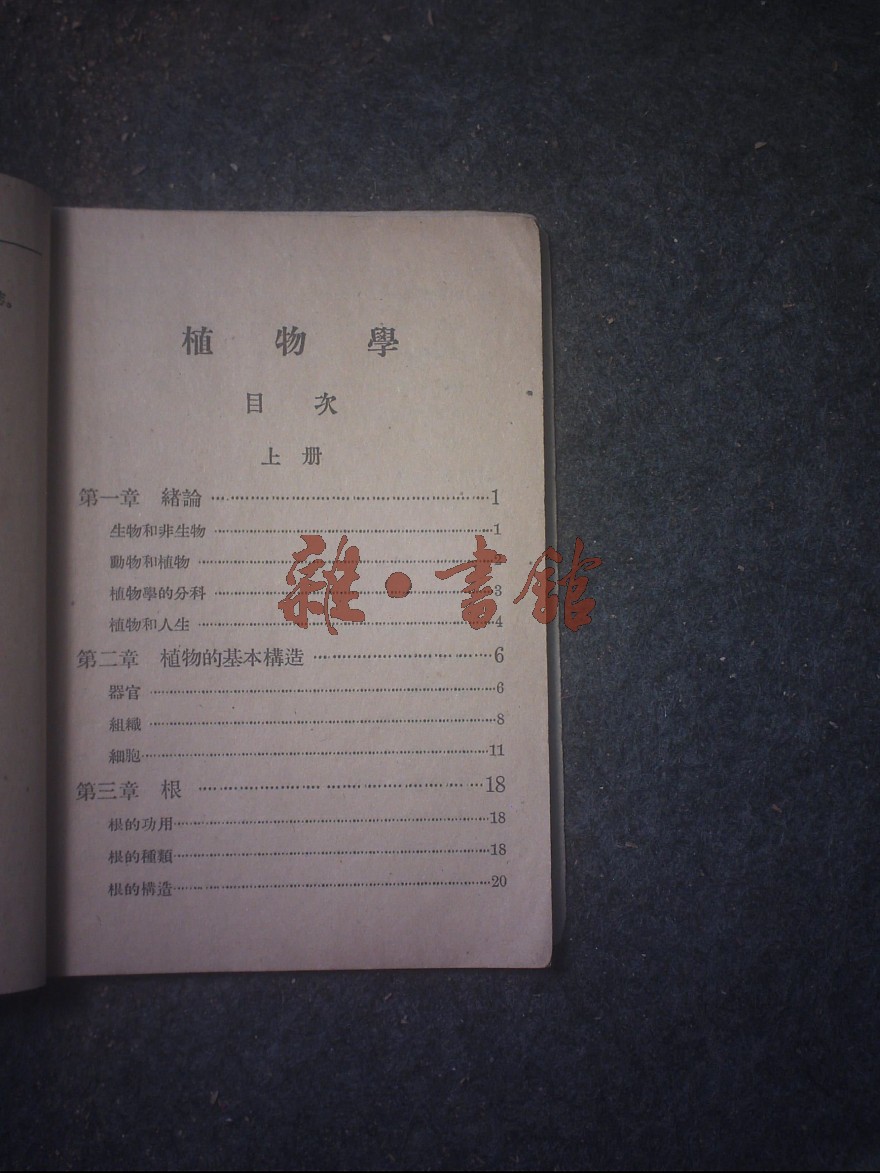 植物學
目次
上册
第一章 緒論 …… 1
生物和非生物 …… 1
動物和植物 ……
植物學的分科 …… 3
植物和人生 …… 4
第二章 植物的基本構造 …… 6
器官 …… 6
組織 …… 8
細胞 …… 11
第三章 根 …… 18
根的功用 …… 18
根的種類 …… 18
根的構造 …… 20
雜·書館